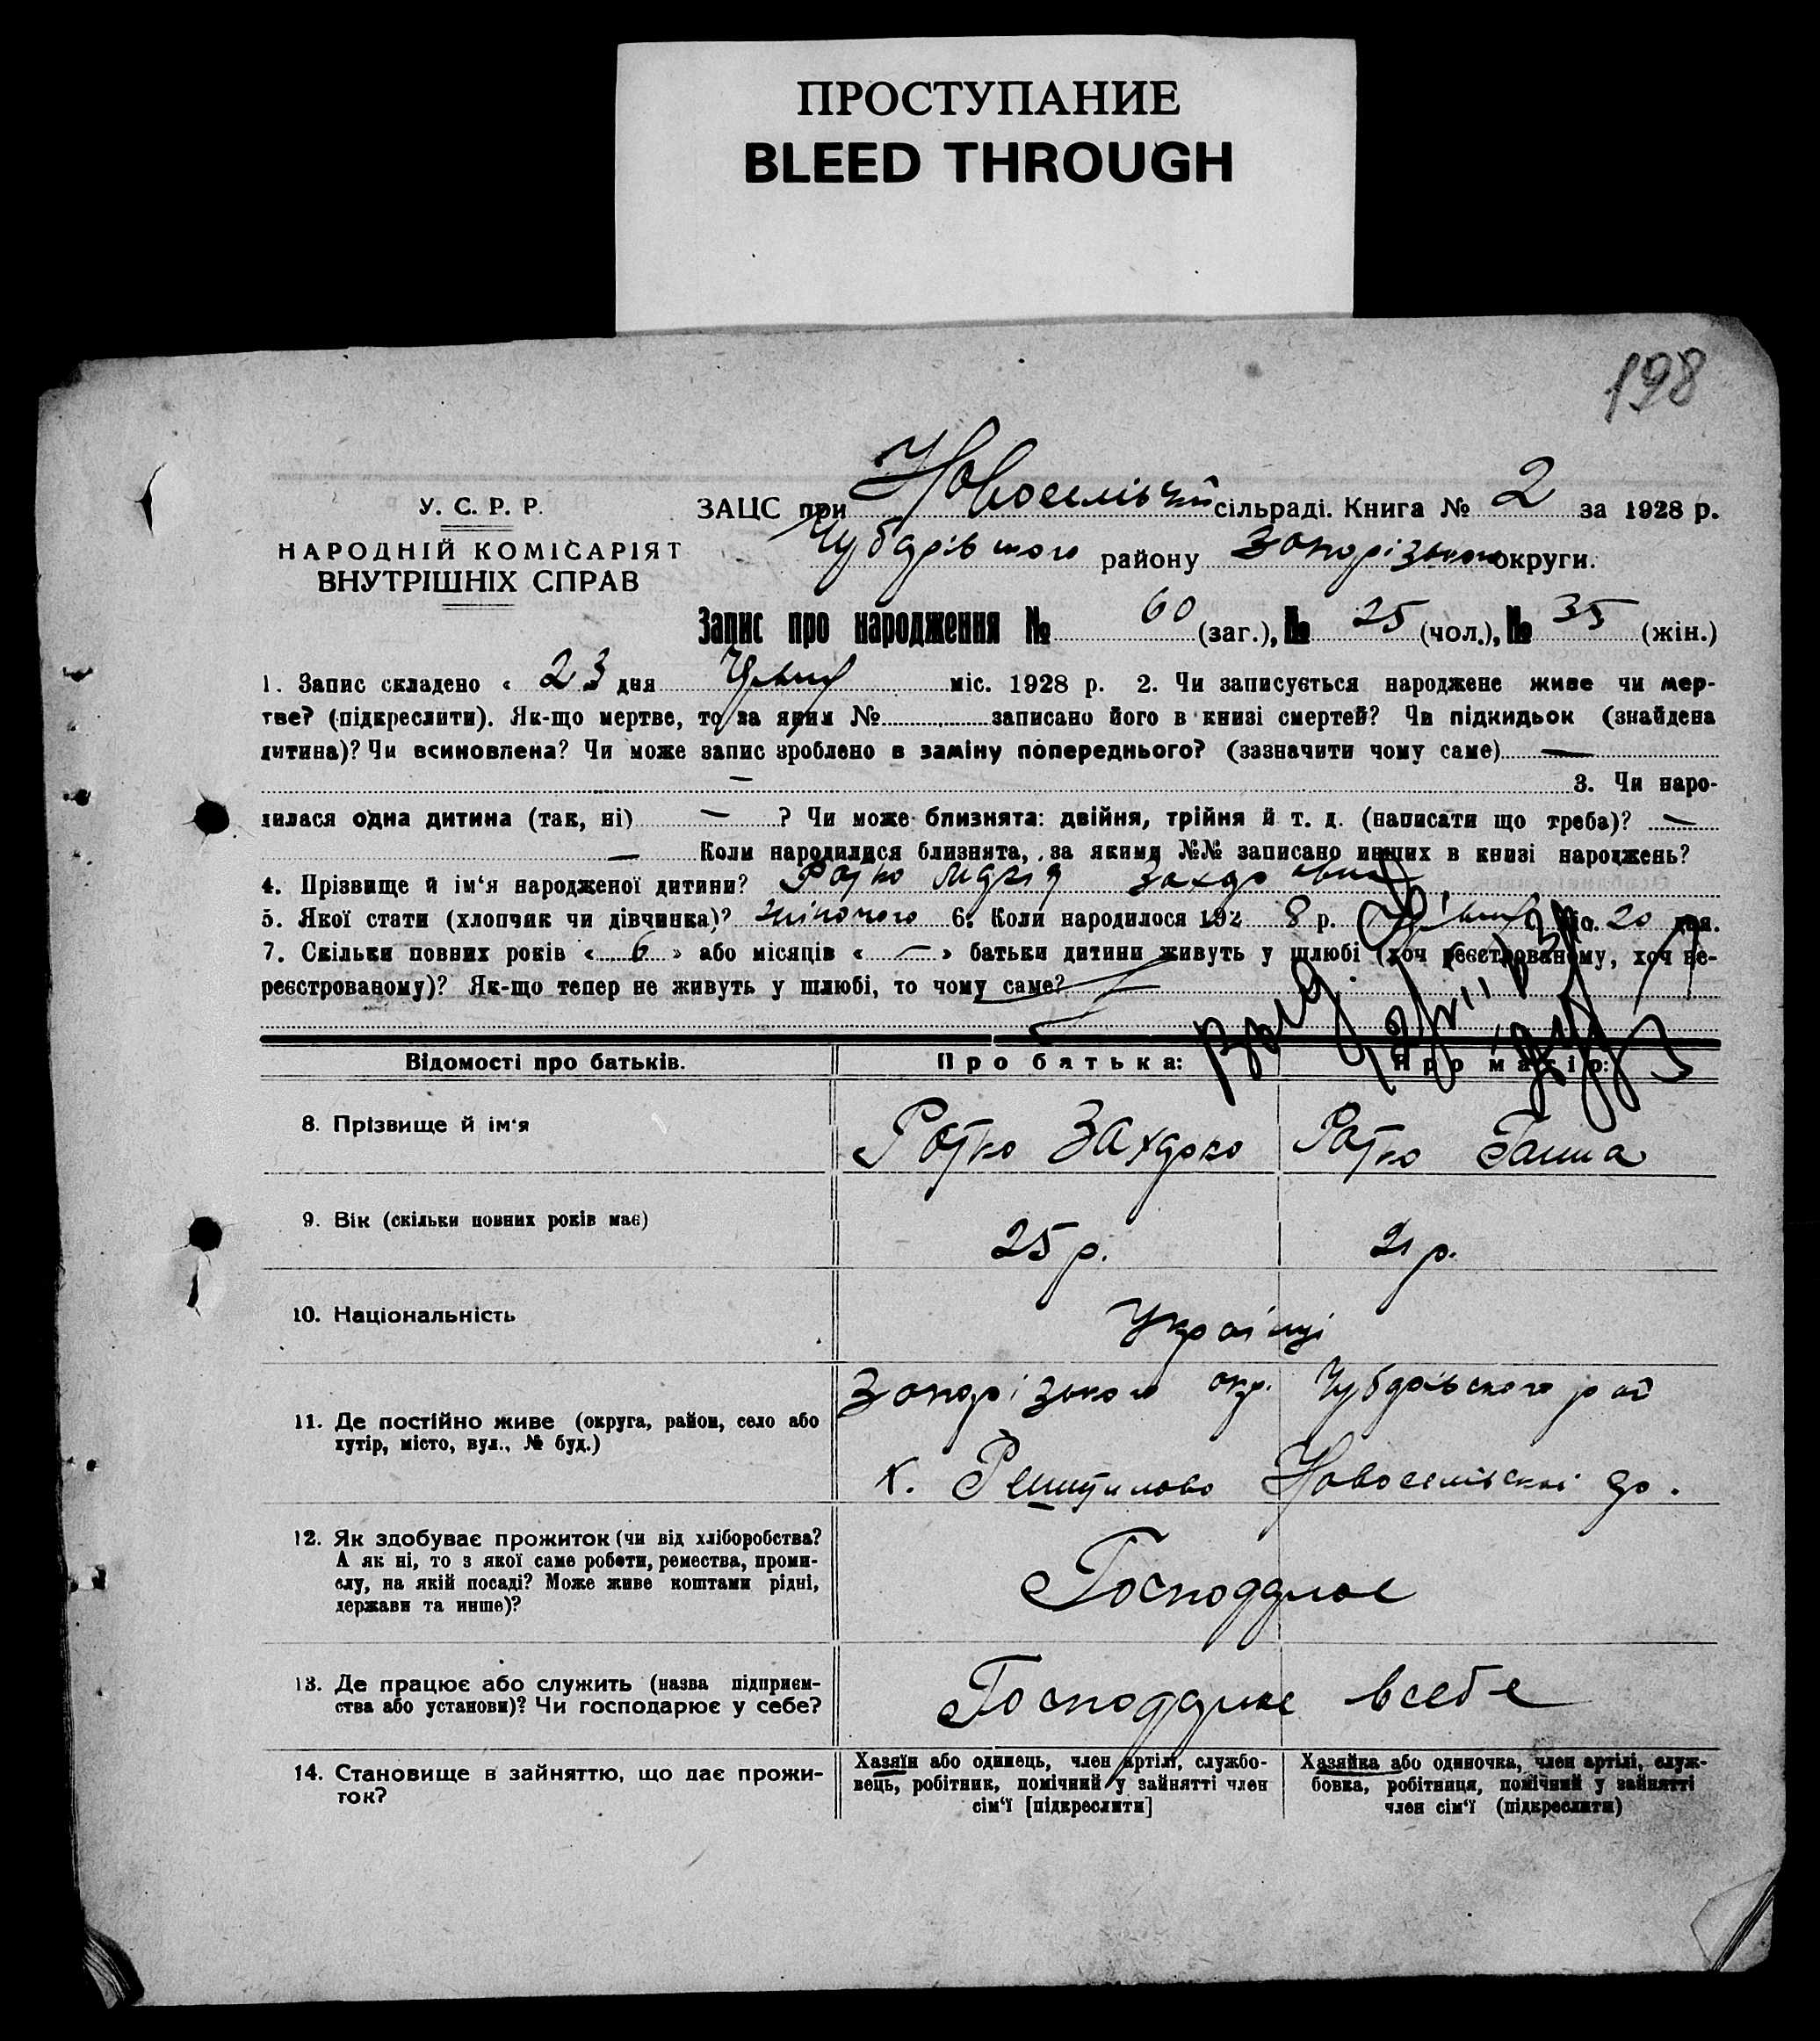 ПРОСТУПАНИЕ
BLEED THROUGH
198
У. С. Р. Р.
НАРОДНІЙ КОМІСАРІЯТ
ВНУТРІШНІХ СПРАВ
ЗАЦС при Новоселівській сільраді. Книга № 2 за 1928 р.
Чубарівського району Запорізького округи.
Запис про народження № 60 (заг.), № 25 (чол.), № 35 (жін.)
1. Запис складено « 23 дня міс. 1928 р. 2. Чи записується народжене живе чи мер-
тве? (підкреслити). Як-що мертве, то за яким № записано його в книзі смертей? Чи підкидьок (знайдена
дитина)? Чи всиновлена? Чи може запис зроблено в заміну попереднього? (зазначити чому саме) —
— 3. Чи наро-
дилася одна дитина (так, ні) — ? Чи може близнята: двійня, трійня й т. д. (написати що треба)? —
— Коли народилися близнята, за якими №№ записано инших в книзі народжень?
4. Прізвище й ім‘я народженої дитини? Захаровна
5. Якої стати (хлопчик чи дівчинка)? жіночого 6. Коли народилося 192 8 р. міс. 20 дня.
7. Скільки повних років « 6 » або місяців « — » батьки дитини живуть у шлюбі (хоч реєстрованому, хоч не-
реєстрованому)? Як-що тепер не живуть у шлюбі, то чому саме?
Відомості про батьків. Про батька: Про матір:
8. Прізвище й ім‘я
Ратко Захарко Ратко Ганна
9. Вік (скільки повних років має)
25 р. 21 р.
10. Національність
Українці
11. Де постійно живе (округа, район, село або
хутір, місто, вул., № буд.)
Запорізького окр. Чубарівського рай
х. Новоселівскої
12. Як здобуває прожиток (чи від хліборобства?
А як ні, то з якої саме роботи, ремества, проми-
слу, на якій посаді? Може живе коштами рідні,
держави та инше)?
Господарює
13. Де працює або служить (назва підприєм-
ства або установи)? Чи господарює у себе?
Господарює всебе
14. Становище в зайняттю, що дає прожи-
ток?
Хазяїн або одинець, член артілі, службо-
вець, робітник, помічний у зайнятті член
сім‘ї [підкреслити]
Хазяйка або одиночка, член артілі, служ-
бовка, робітниця, помічний у зайнятті
член сім‘ї (підкреслити)